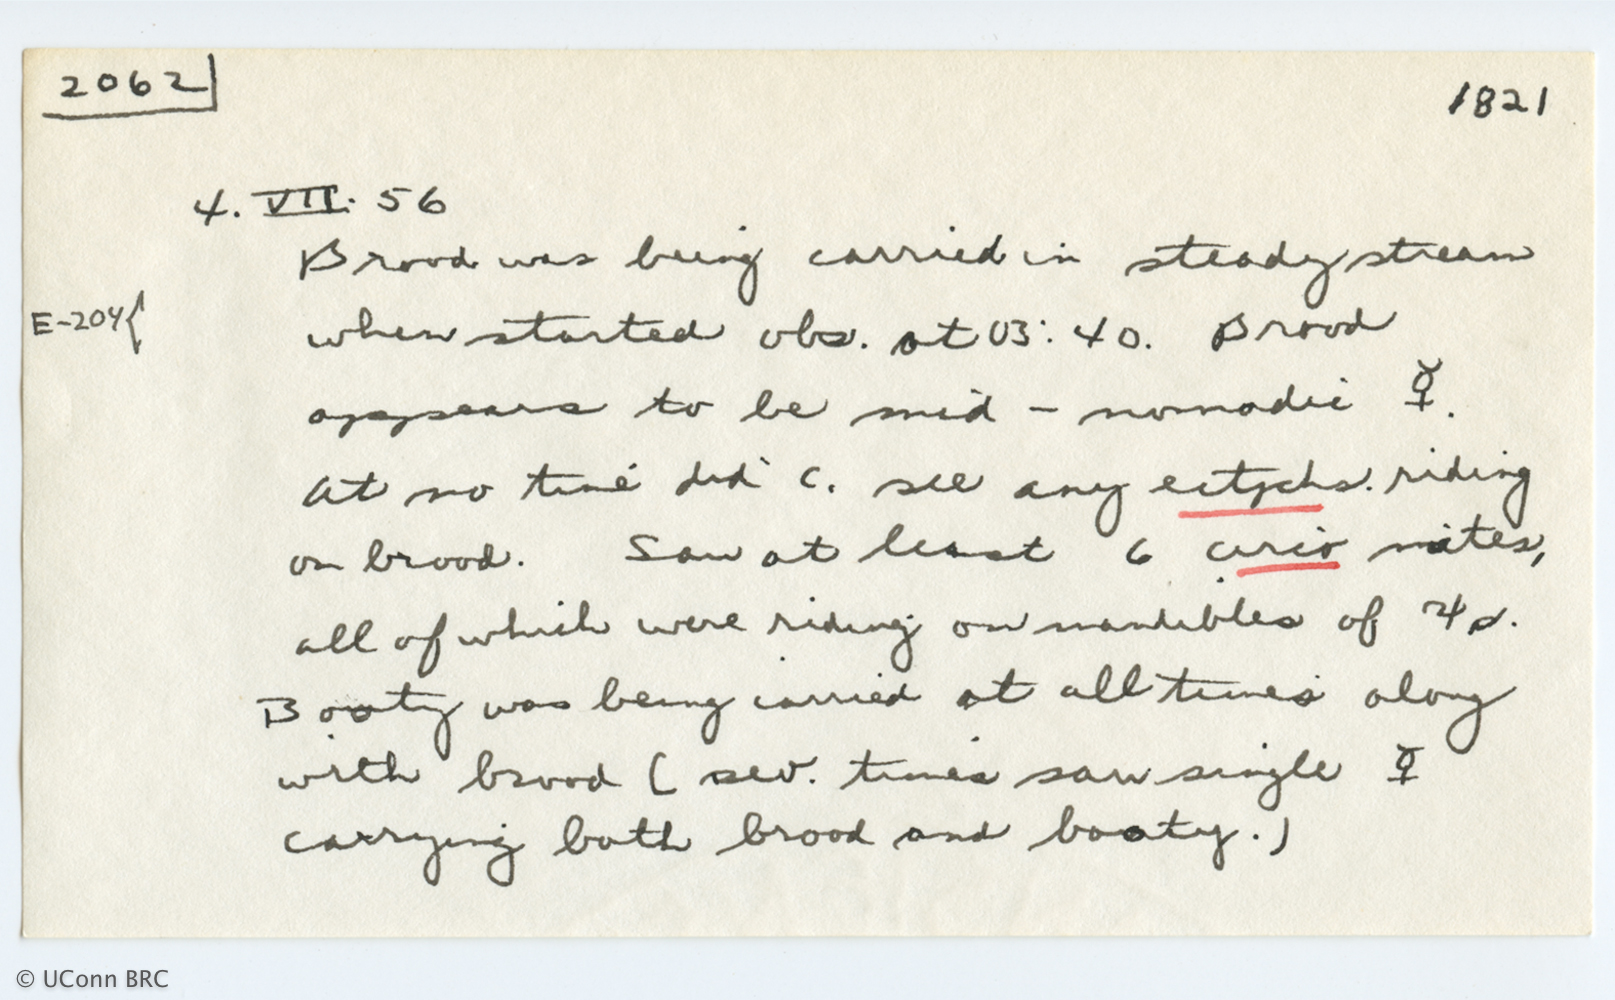 2062
1821
4. VII. 56
Brood was being carried in steady stream
E-204{
when started obs. at 03:40. Brood
appears to be mid-nomadic ☿.
At no time did C. see any ectychs. riding
on brood. Saw at least 6 circo mites,
all of which were riding on mandibles of ♃s.
Booty was being carried at all times along
with brood (sev. times saw single ☿
carrying both brood and booty.)
© UConn BRC